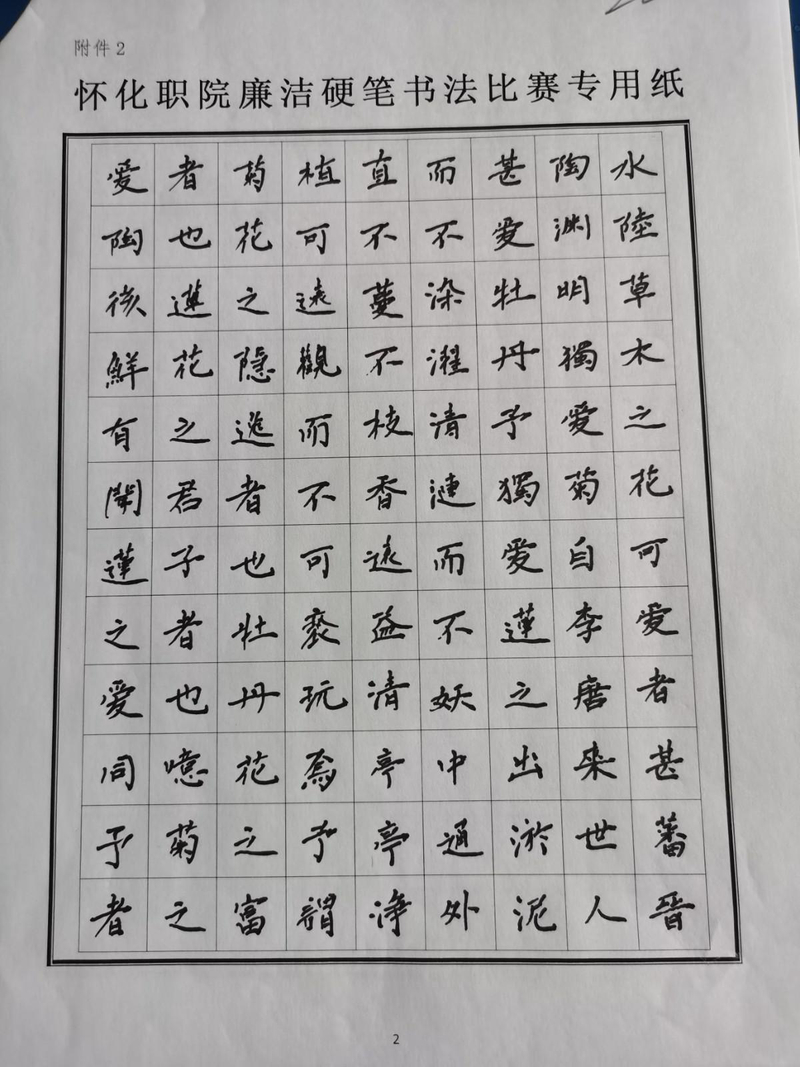 附件2
怀化职院廉洁硬笔书法比赛专用纸
水陸草木之花可愛者甚蕃晉
陶渊明獨愛菊自李唐来世人
甚愛牡丹予獨愛蓮之出淤泥
而不染濯清漣而不妖中通外
直不蔓不枝香遠益清亭亭净
植可遠觀而不可亵玩焉予謂
菊花之隱逸者也牡丹花之富
者也蓮花之君子者也噫菊之
愛陶後鮮有聞蓮之愛同予者
2